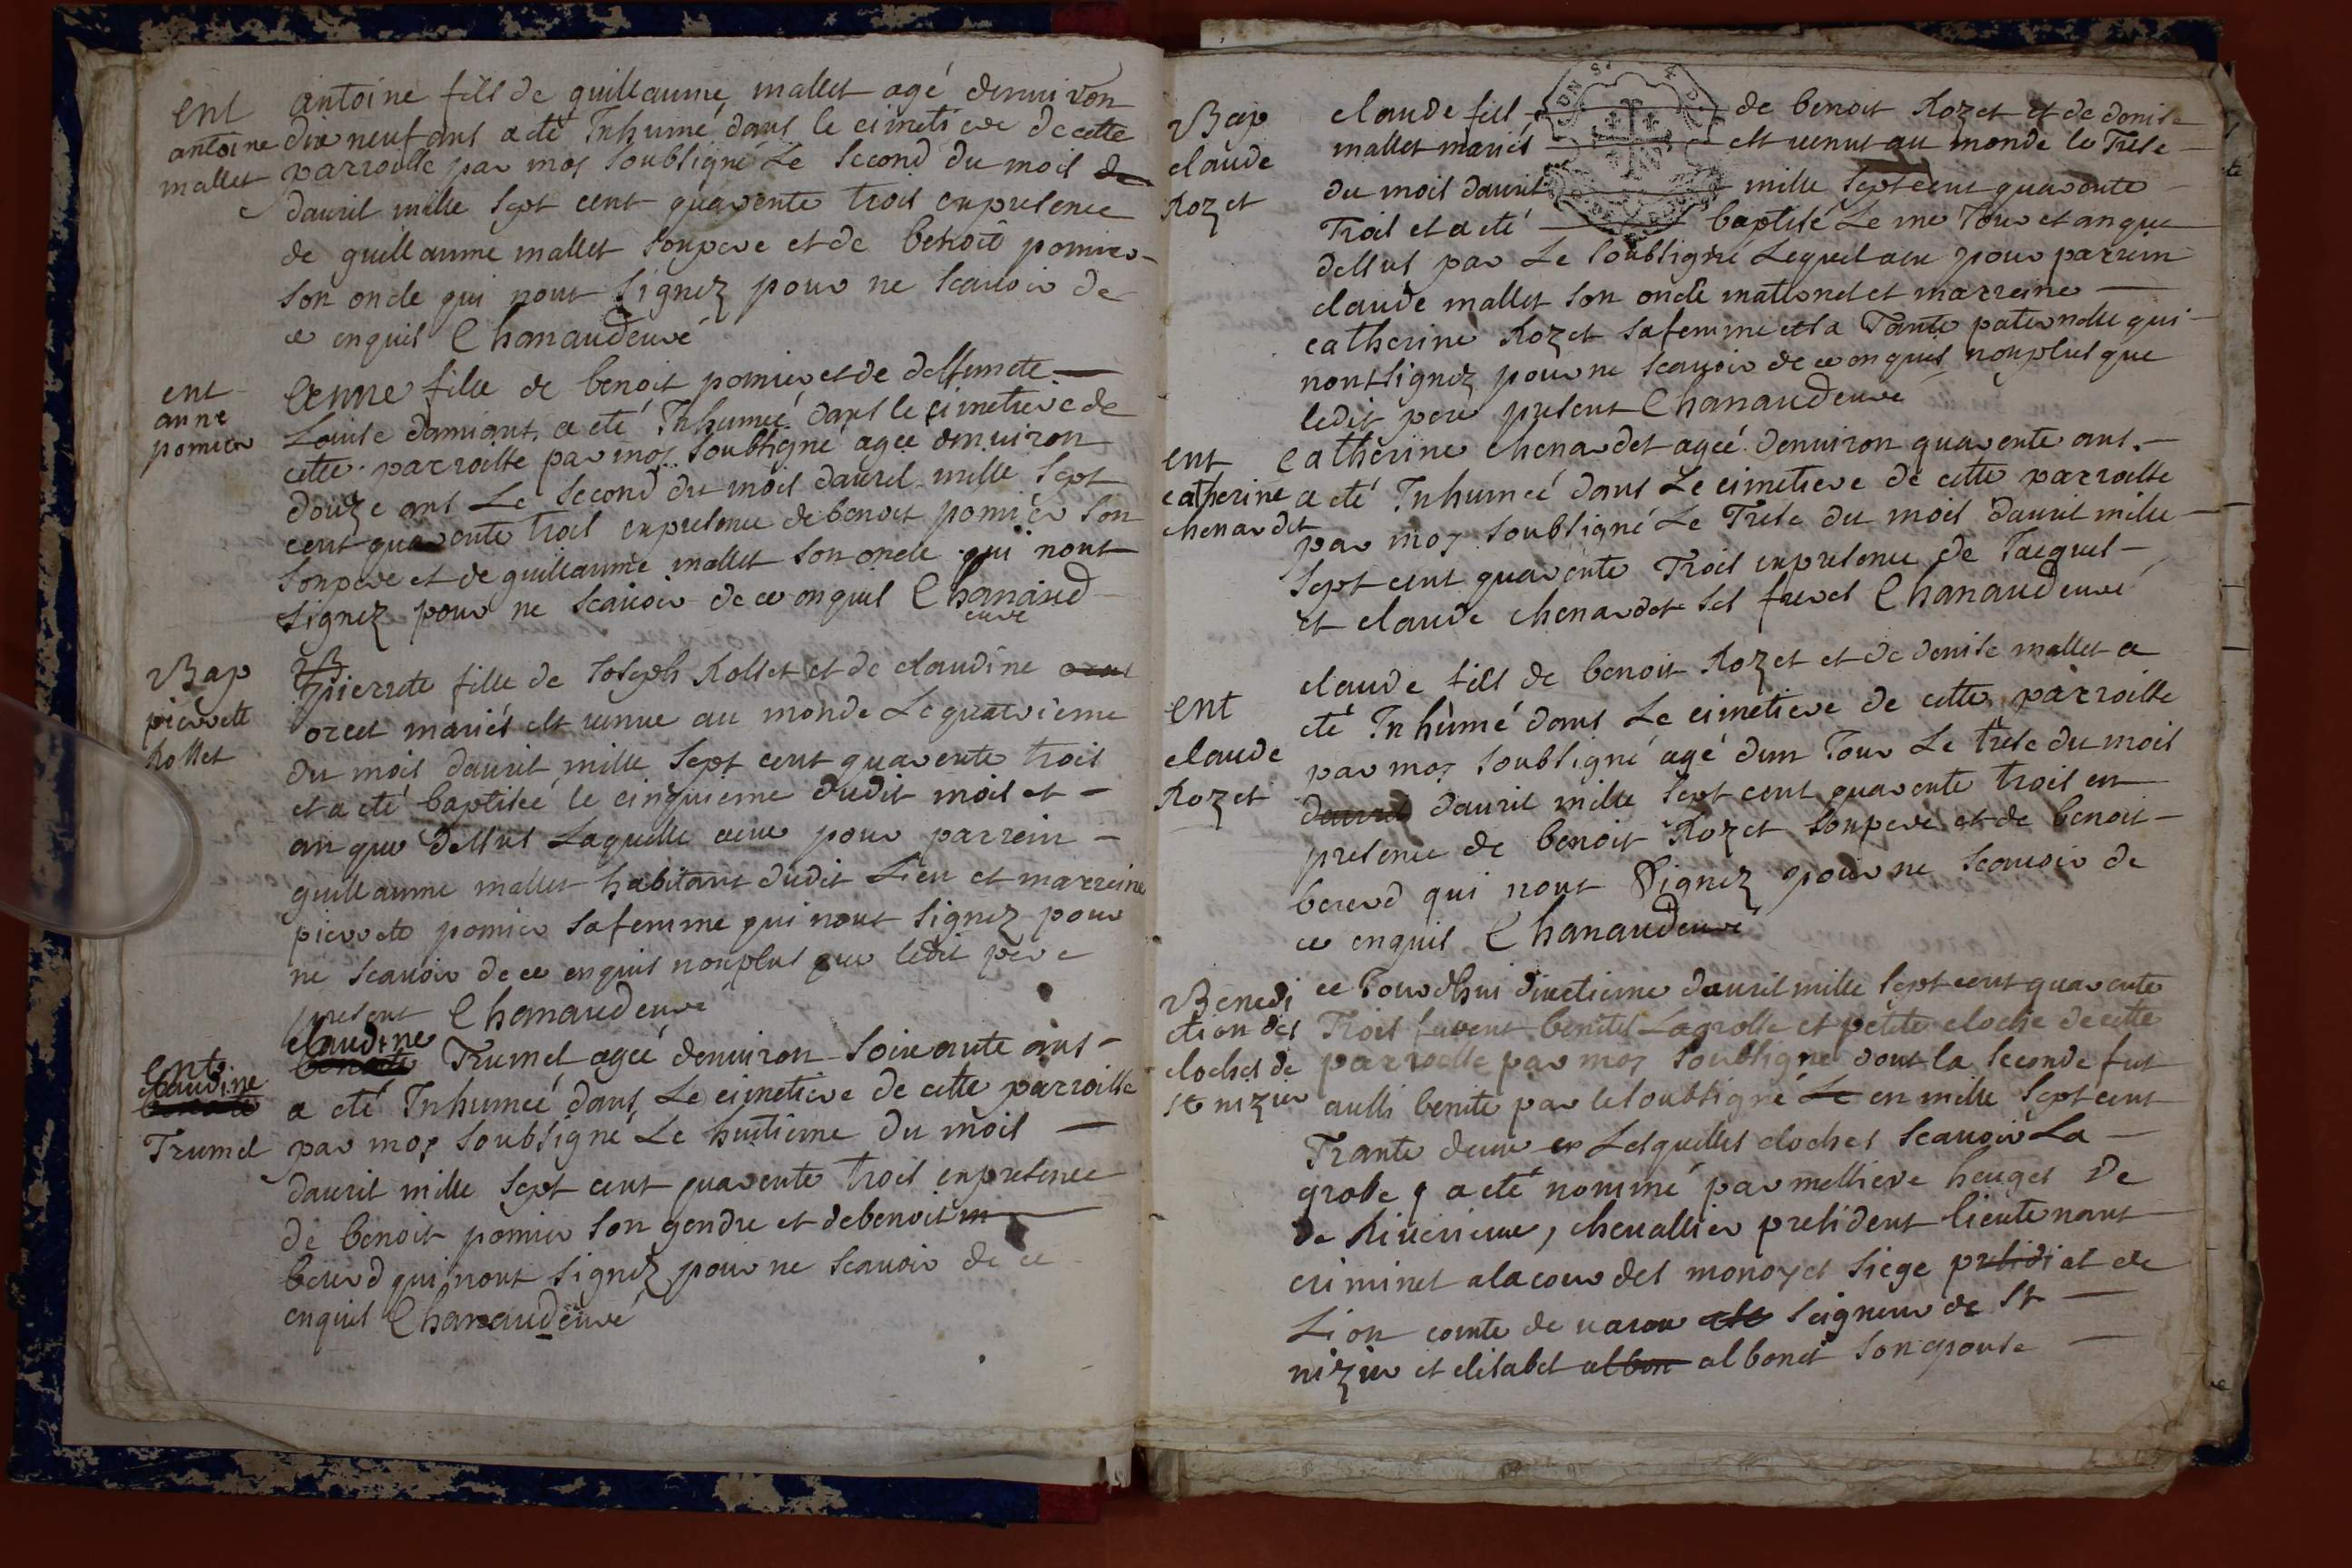 ent
antoine
mallet
antoine fils de guillaume mallet agé denuiron
dix neuf ans a eté Inhumé dans le cimetiere de cette
parroisse par moy soubsigné Le second du mois de
dauril mille sept cent quarente trois en presence
de guillaume mallet son pere et de benoit pomier
son oncle qui nont signez pour ne scauoir de
ce enquis Chanaudeuve
ent
anne
pomier
anne fille de benoit pomier et de deffunete
Louise damiant a eté Inhumeé dans le cimetiere de
cette parroisse par moy soubsigné agee denuiron
douze ans Le second du mois dauril mille sept
cent quarente trois en presence de benoit pomier son
son pere et de guillaume mallet son oncle qui nont
signez pour ne scauoir de ce onquis Chanaud
euve
Bap
pierrette
Rosset
pierrete fille de Joseph Rosset et de claudine
orcet mariés est uenue au monde Le quatrieme
du mois dauril mille sept cent quarente trois
et a eté baptiseé le cinquieme dudit mois et
an que dessus Laquelle a eue pour parrein
guillaume mallet habitant dudit Lieu et marreine
pierrete pomier sa femme qui nont signez pour
ne scauoir de ce enquis non plus que ledit pere
present Chanaudeuve
ent
claudine
Trumel
claudine
Trumel ageé denuiron soixante ans
a eté Inhumeé dans Le cimetiere de cette parroisse
par moy soubsigné Le huitieme du mois
dauril mille sept cent quarente trois en presence
de benoit pomier son gendre et de benoit m
berard qui nont signez pour ne scauoir de ce
enquis Chanaudeuvé
Bap
claude
Rozet
claude fils de benoit Rozet et de denise
mallet mariés est uenut au monde le Trese
du mois dauril mille sept cent quarente
Trois et a eté baptisé Le me Jour et an que
dessus par Le soubsigné Lequel a eu pour parrein
claude mallet son oncle maternel et marreine
catherine Rozet sa femme et sa Tante paternelle qui
nont signez pour ne scauoir de ce onquis non plus que
ledit pere present Chanaudeuve
ent
catherine
chenardet
catherine chenardet ageé denuiron quarente ans
a eté Inhumeé dans Le cimetiere de cette parroisse
par moy soubsigné Le Trese du mois dauril mille
sept cent quarente Trois en presence de Jacques
et claude chenardet ses freres Chanaudeuvé
ent
claude
Rozet
claude fils de benoit Rozet et de denise mallet a
eté Inhumé dans Le cimetiere de cette parroisse
par moy soubsigné agé dun Jour Le trese du mois
dauril dauril mille sept cent quarente trois en
presence de benoit Rozet son pere et de benoit
berard qui nont signez pour ne scauoir de
ce enquis Chanaudeuvé
Benedi
ction des
cloches de
St nizier
ce Jourdhui dixetieme dauril mille sept cent quarente
Trois furent benites La grosse et petite cloche de cette
parroisse par moy soubsigné dont la seconde fut
aussi benite par le soubsigné Le en mille sept cent
Trante deux Lesquelles cloches scauoir La
grose a eté nommé par messiere heuges De
de Riuerieux, cheuallier president lieutenant
criminel a la cour des monoyes siege presidial de
Lion comte de uarax seigneur de St
nizier et elisabet albon albonet son epouse